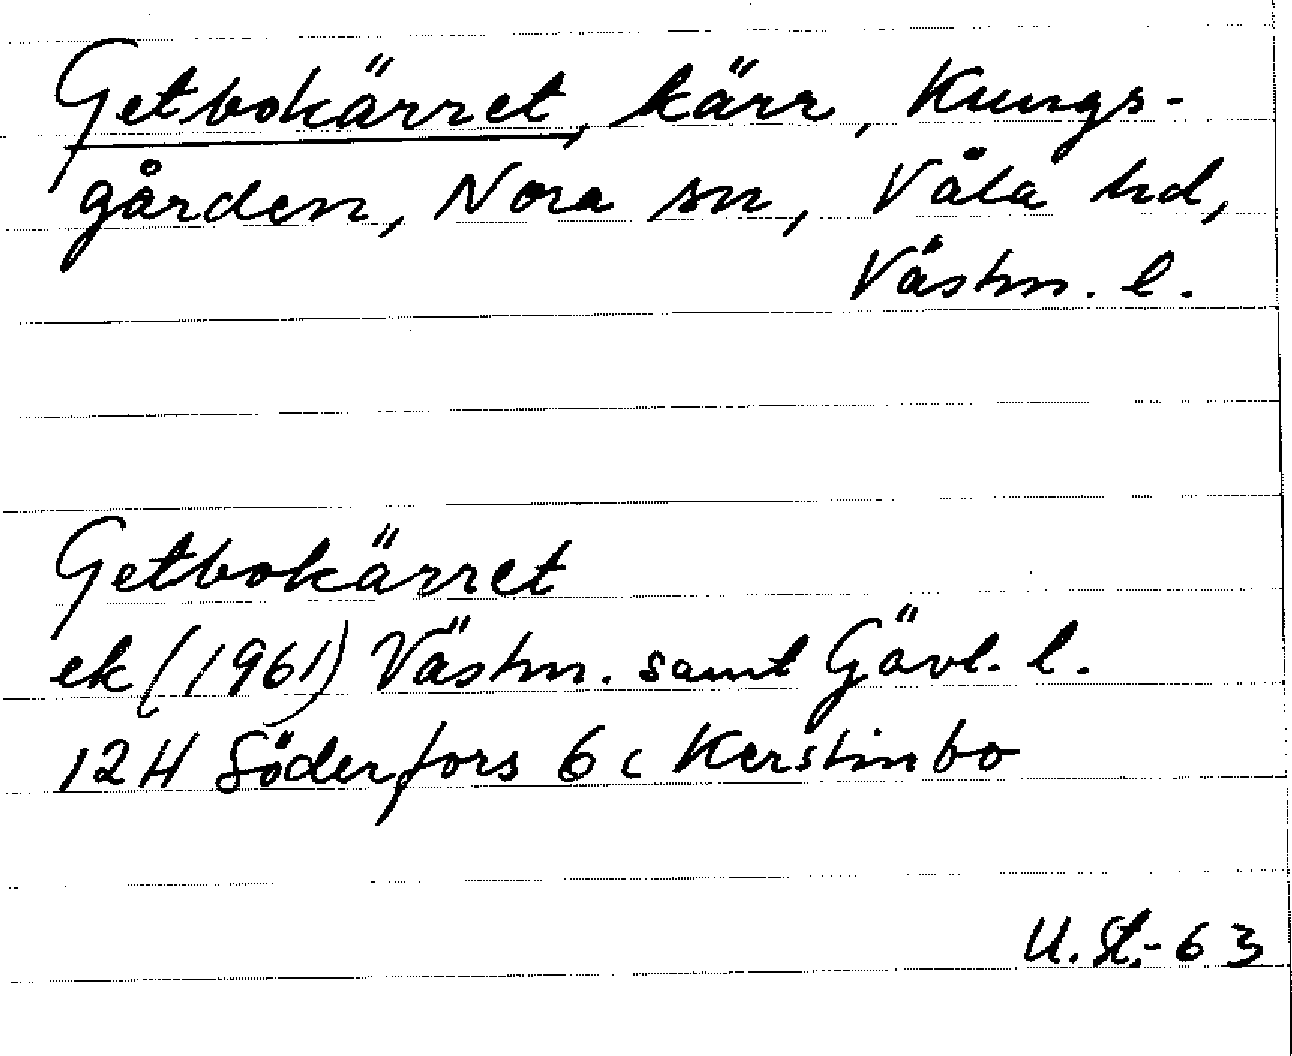 Getbokärret, kärr, Kungs-
gården, Nora sn, Våla hd,
Västm. l.
Getbokärret
ek (1961) Västm. samt Gävl. l.
12H Söderfors 6c Kerstinbo
U. St.-63